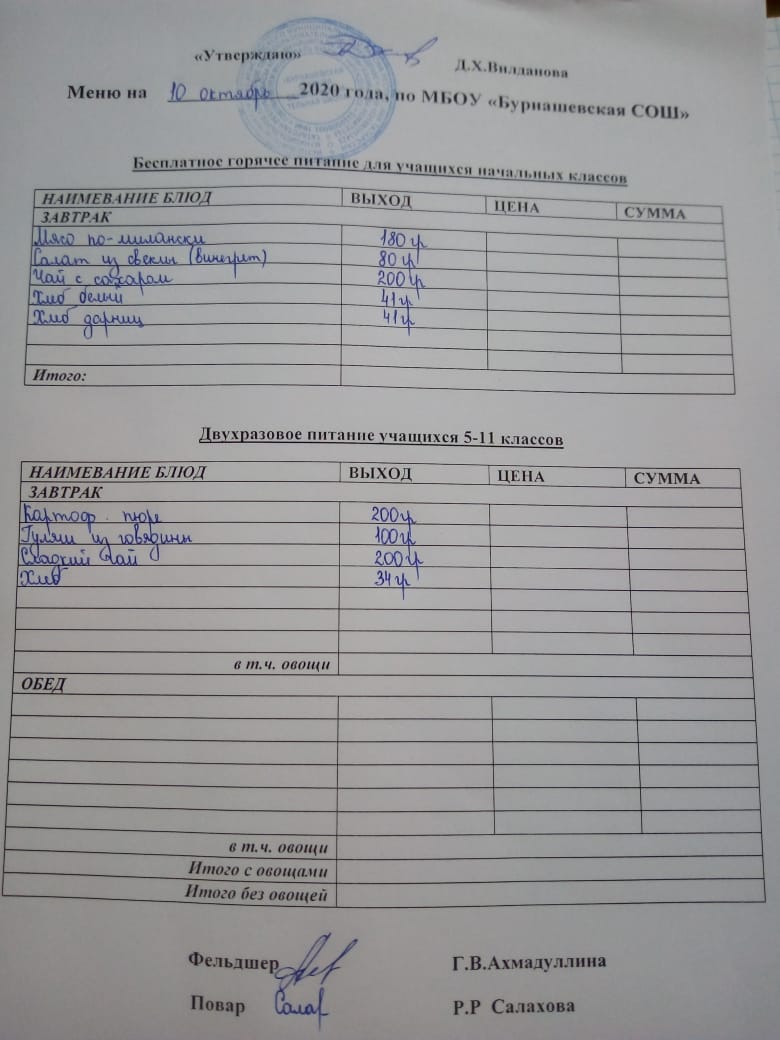 «Утверждаю» Д.Х.Вилданова
Меню на 10 октябрь 2020 года, по МБОУ «Бурнашевская СОШ»
Бесплатное горячее питание для учащихся начальных классов
НАИМЕВАНИЕ БЛЮД ВЫХОД ЦЕНА СУММА
ЗАВТРАК
Мясо по-милански 180 гр
Салат из свеклы (винегрет) 80 гр
Чай с сахаром 200 гр
Хлеб белый 41 гр
Хлеб дарниц 41 гр
Итого:
Двухразовое питание учащихся 5-11 классов
НАИМЕВАНИЕ БЛЮД ВЫХОД ЦЕНА СУММА
ЗАВТРАК
Картоф. пюре 200 гр
Гуляш из говядины 100 гр
Сладкий чай 200 гр
Хлеб 34 гр
в т.ч. овощи
ОБЕД
в т.ч. овощи
Итого с овощами
Итого без овощей
Фельдшер Г.В.Ахмадуллина
Повар Салах Р.Р Салахова